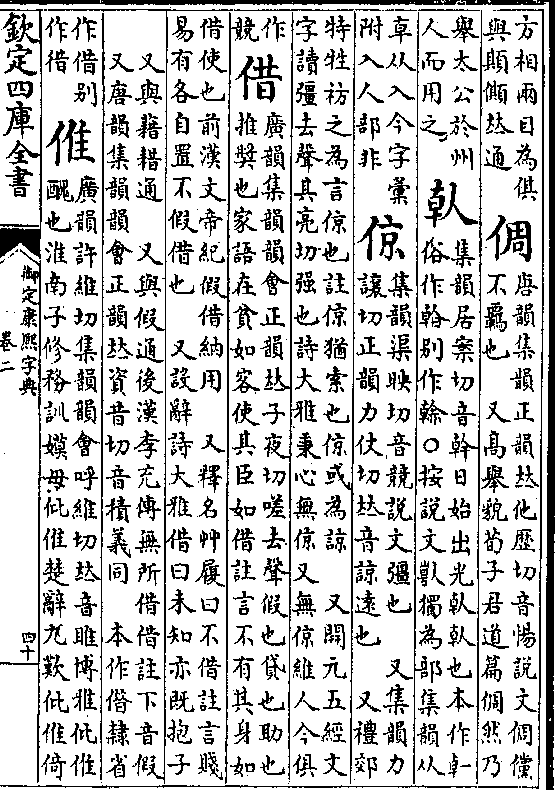 方相兩目為倛
與顛僛𠀤通
倜
唐韻集韻正韻𠀤他歷切音惕說文倜儻
不羈也　又高舉貌荀子君道篇倜然乃
舉太公於州
人而用之
倝
集韻居案切音幹日始出光倝倝也本作𠦝
俗作斡别作榦○按說文倝獨為部集韻从
𠦝从入今字彙
附入人部非
倞
集韻渠映切音競說文彊也　又集韻力
讓切正韻力仗切𠀤音諒遠也　又禮郊
特牲祊之為言倞也註倞猶索也倞或為諒　又開元五經文
字讀彊去聲其亮切强也詩大雅秉心無倞又無倞維人今俱
作
競
借
廣韻集韻韻會正韻𠀤子夜切嗟去聲假也貸也助也
推獎也家語在貧如客使其臣如借註言不有其身如
借使也前漢文帝紀假借納用　又釋名艸屨曰不借註言賤
易有各自置不假借也　又設辭詩大雅借曰未知亦既抱子
又與藉耤通　又與假通後漢李充傳無所借借註下音假
又唐韻集韻韻會正韻𠀤資昔切音積義同　本作㒅隷省
作借别
作徣
倠
廣韻許維切集韻韻會呼維切𠀤音睢博雅仳倠
醜也淮南子修務訓嫫母仳倠楚辭九歎仳倠倚
欽定四庫全書
御定康熙字典
卷二
四十